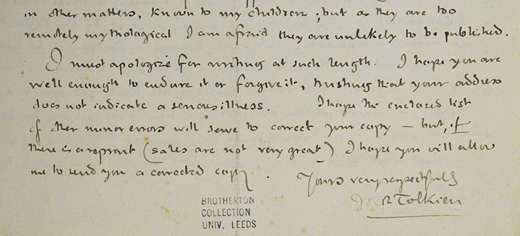 in other matters, known to my children; but as they are too
remotely mythological I am afraid they are unlikely to be published.
I must apologize for writing at such length. I hope you are
well enough to endure it or forgive it, trusting that your address
does not indicate a serious illness. I hope the enclosed list
of other minor errors will serve to correct your copy — but, if
there is a reprint (sales are not very great) I hope you will allow
me to send you a corrected copy.
Yours very respectfully
J R Tolkien
BROTHERTON
COLLECTION
UNIV. LEEDS